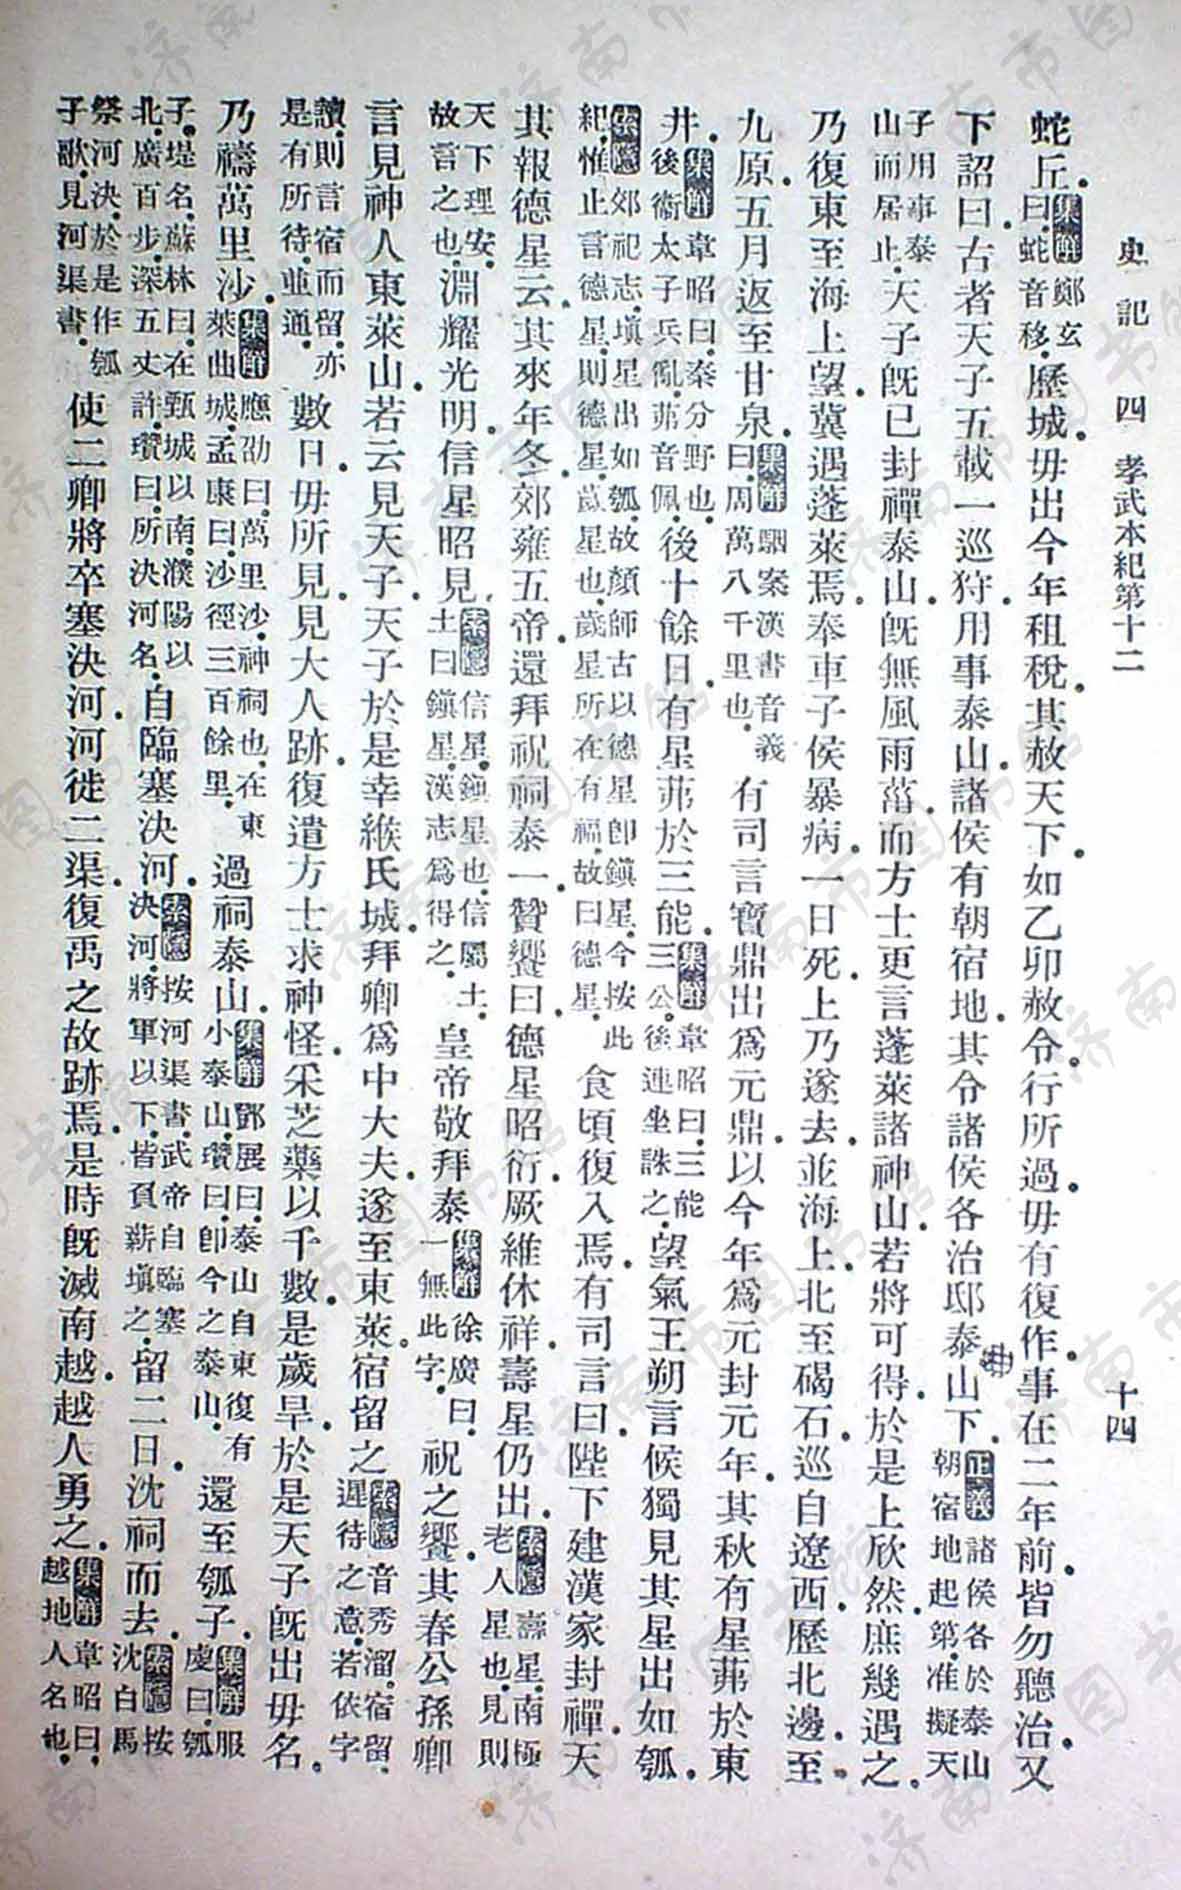 史記 四 孝武本紀第十二 十四
蛇丘.集解鄭玄曰.蛇音移.歷城.毋出今年租稅.其赦天下.如乙卯赦令.行所過.毋有復作.事在二年前.皆勿聽治.又
下詔曰.古者天子五載一巡狩.用事泰山.諸侯有朝宿地.其令諸侯各治邸泰山下.正義諸侯各於泰山朝宿地起第.准擬天
子用事泰山而居止.天子既已封禪泰山.既無風雨菑.而方士更言蓬萊諸神山.若將可得.於是上欣然.庶幾遇之.
乃復東至海上望.冀遇蓬萊焉.奉車子侯暴病.一日死.上乃遂去.並海上.北至碣石.巡自遼西.歷北邊.至
九原.五月返至甘泉.集解駰案漢書音義曰.周萬八千里也.有司言寶鼎出爲元鼎.以今年爲元封元年.其秋有星茀於東
井.集解韋昭曰.秦分野也.後衞太子兵亂.茀音佩.後十餘日.有星茀於三能.集解韋昭曰.三能三公.後連坐誅之.望氣王朔言候獨見其星出如瓠.
索隱郊祀志.塡星出如瓠.故顏師古以德星卽鎭星.今按此紀.惟止言德星.則德星歲星也.歲星所在有福.故曰德星.食頃復入焉.有司言曰.陛下建漢家封禪.天
其報德星云.其來年冬.郊雍五帝.還拜祝祠泰一.贊饗曰.德星昭衍.厥維休祥.壽星仍出.索隱壽星.南極老人星也.見則
天下理安.故言之也.淵耀光明.信星昭見.索隱信星.鎭星也.信屬土.土曰鎭星.漢志爲得之.皇帝敬拜泰集解徐廣曰.一無此字.祝之饗.其春公孫卿
言見神人東萊山.若云見天子.天子於是幸緱氏城.拜卿爲中大夫.遂至東萊.宿留之索隱音秀溜.宿留.遲待之意.若依字
讀.則言宿而留.亦是有所待.並通.數日.毋所見.見大人跡.復遣方士求神怪.采芝藥以千數.是歲旱.於是天子既出毋名.
乃禱萬里沙.集解應劭曰.萬里沙.神祠也.在東萊曲城.孟康曰.沙徑三百餘里.過祠泰山.集解鄧展曰.泰山自東復有小泰山.瓚曰.卽今之泰山.還至瓠子.集解服虔曰.瓠
子.堤名.蘇林曰.在甄城以南.濮陽以北.廣百步.深五丈許.瓚曰.所決河名.自臨塞決河.索隱按河渠書.武帝自臨塞決河.將軍以下.皆負薪塡之.留二日.沈祠而去.索隱按沈白馬
祭河決.於是作瓠子歌.見河渠書.使二卿將卒塞決河.河徙二渠.復禹之故跡焉.是時既滅南越.越人勇之.集解韋昭曰.越地人名也.